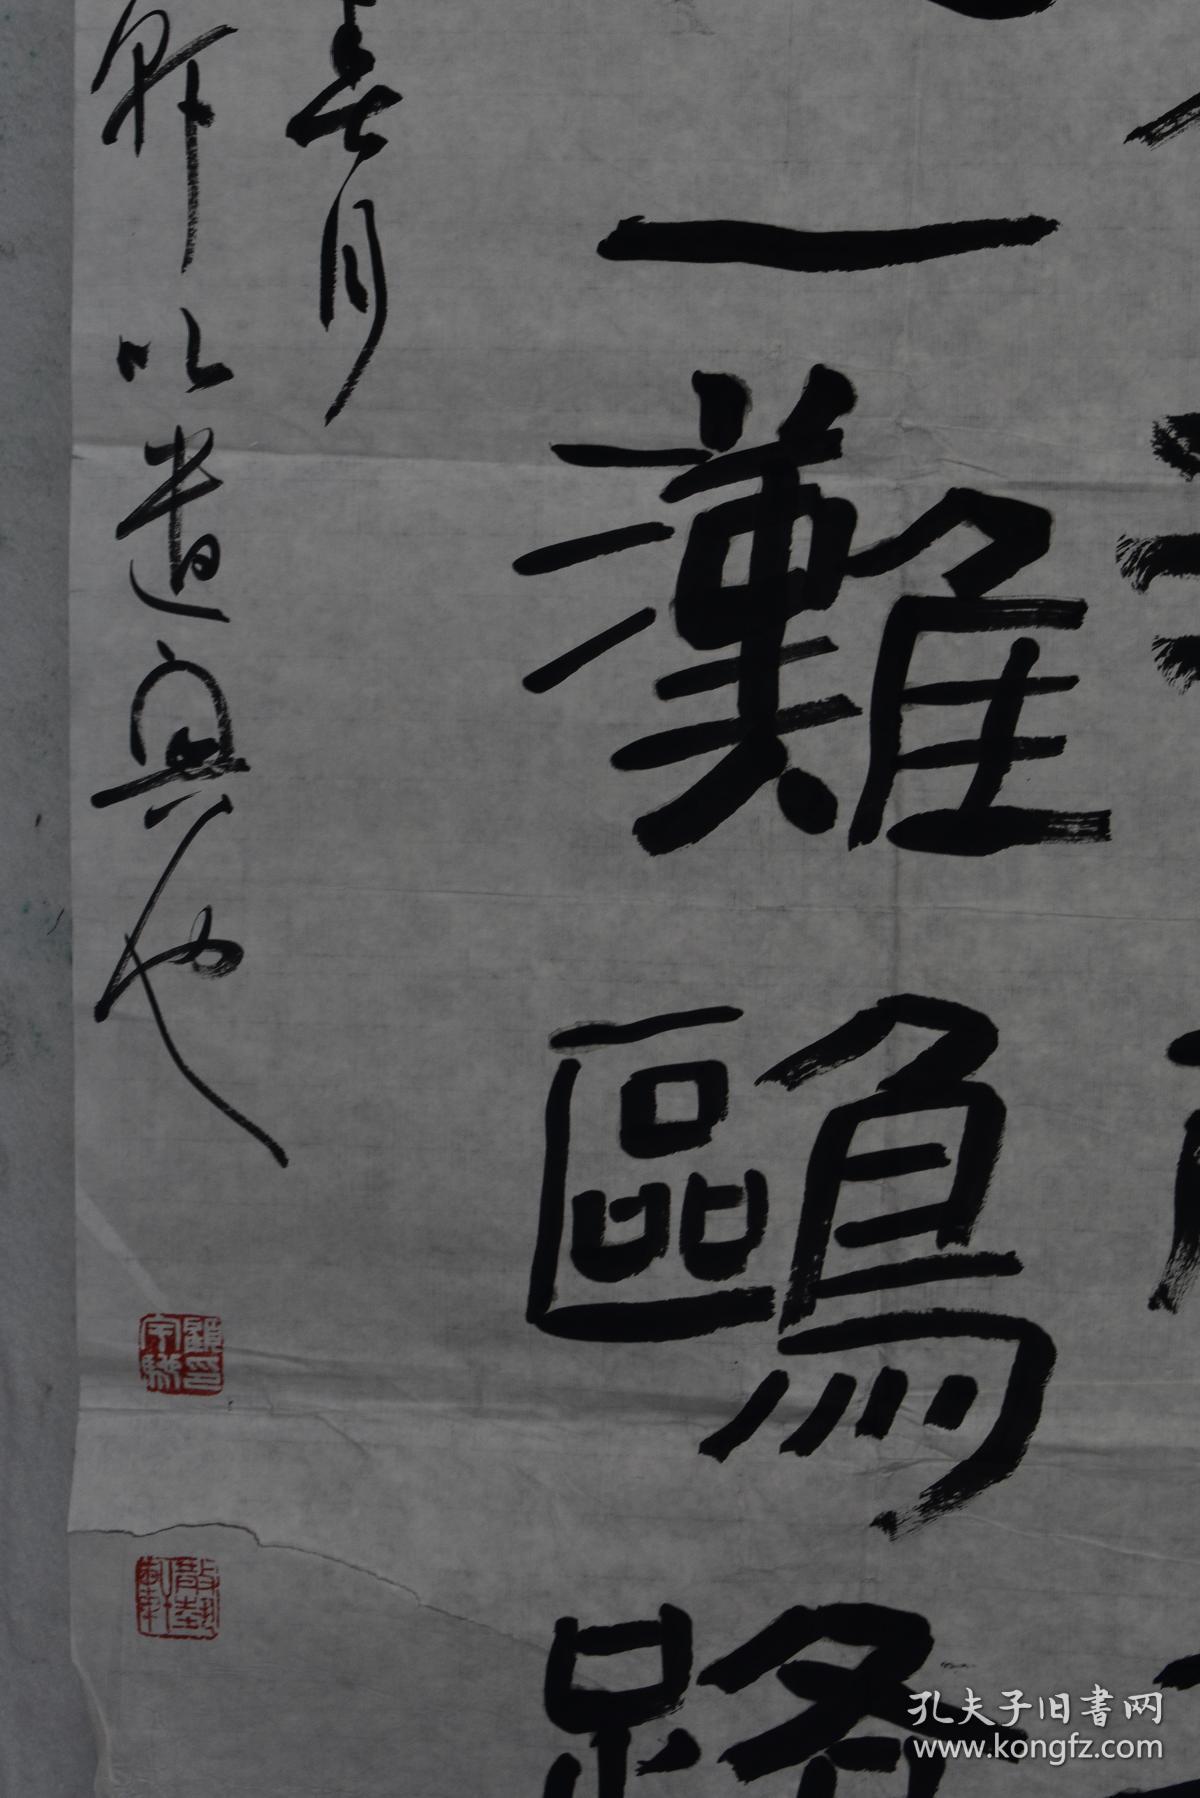 一灘鷗鷺
春月
軒以遣興也
孔夫子旧書网
www.kongfz.com